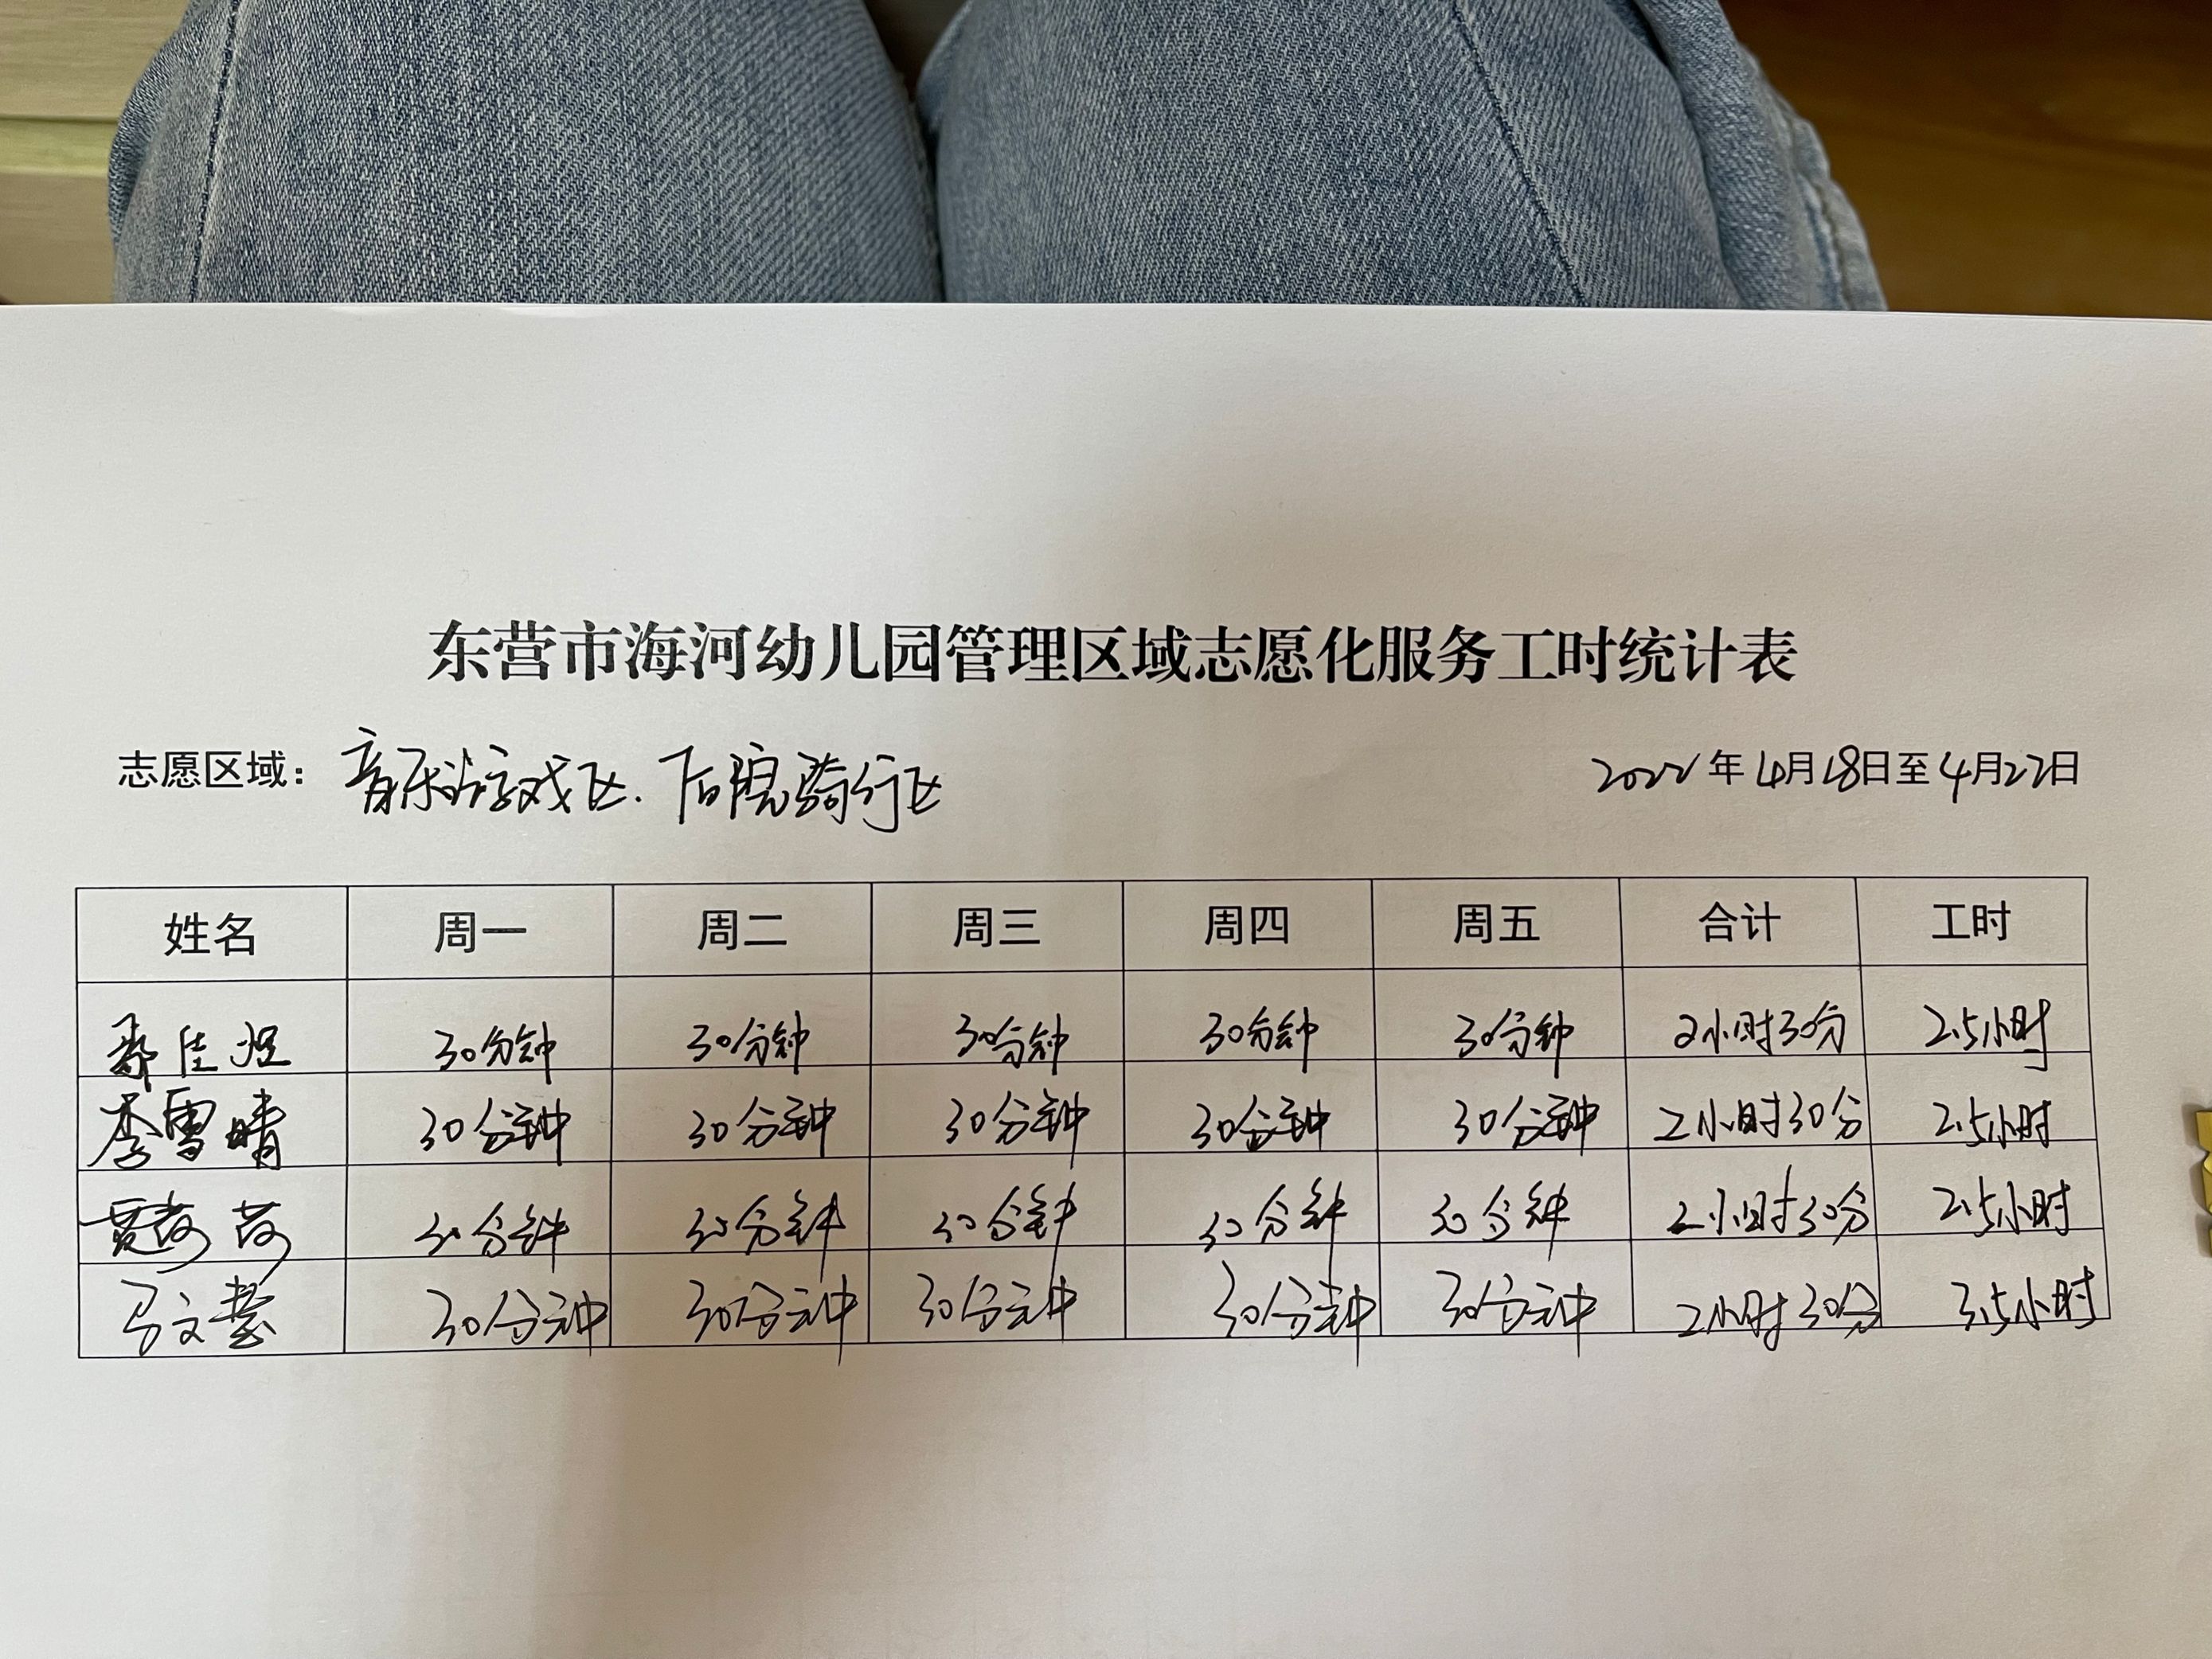 东营市海河幼儿园管理区域志愿化服务工时统计表
志愿区域：音乐游戏区.后院骑行区 2022年4月18日至4月22日
姓名 周一 周二 周三 周四 周五 合计 工时
佳 30分钟 30分钟 30分钟 30分钟 30分钟 2小时30分 2.5小时
李雪晴 30分钟 30分钟 30分钟 30分钟 30分钟 2小时30分 2.5小时
贾荷荷 30分钟 30分钟 30分钟 30分钟 30分钟 2小时30分 2.5小时
马文慧 30分钟 30分钟 30分钟 30分钟 30分钟 2小时30分 3.5小时